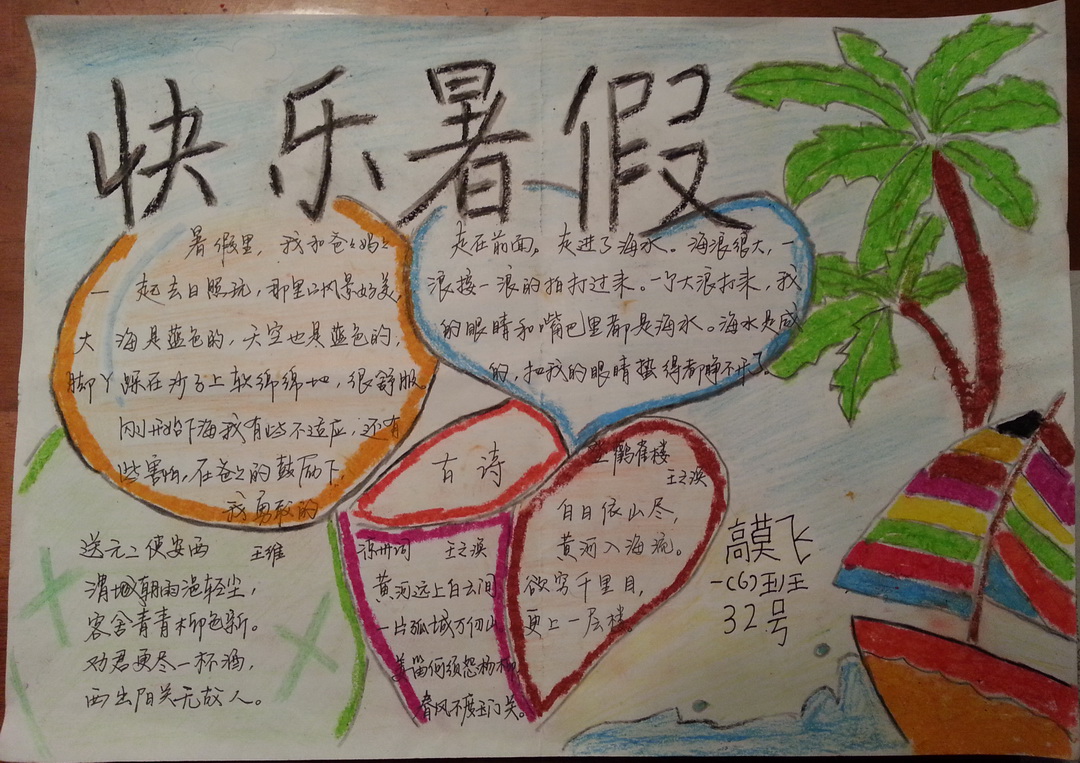 快乐暑假
暑假里，我和爸爸妈妈
一起去日照玩，那里的风景好美，
大海是蓝色的，天空也是蓝色的，
脚丫踩在沙子上软绵绵地，很舒服。
刚开始下海我有些不适应，还有
些害怕，在爸爸的鼓励下，
我勇敢的
走在前面，走进了海水。海浪很大，一
浪接一浪的拍打过来。一个大浪打来，我
的眼睛和嘴巴里都是海水。海水是咸
的，把我的眼睛蛰得都睁不开了。
古诗
送元二使安西 王维
渭城朝雨浥轻尘，
客舍青青柳色新。
劝君更尽一杯酒，
西出阳关无故人。
凉州词 王之涣
黄河远上白云间
一片孤城万仞山
羌笛何须怨杨柳
春风不度玉门关。
登鹳雀楼
王之涣
白日依山尽，
黄河入海流。
欲穷千里目，
更上一层楼。
高莫飞
一(6)班
32号